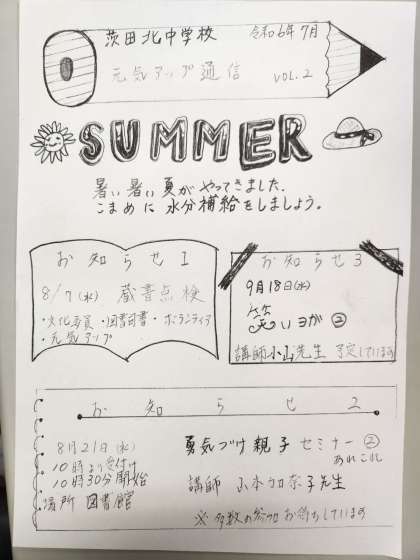 茨田北中学校 令和6年7月
元気アップ通信 VOL.2
SUMMER
暑い暑い夏がやってきました、
こまめに水分補給をしましょう。
お知らせ1
8/7(水) 蔵書点検
・文化委員・図書司書・ボランティア
・元気アップ
お知らせ3
9月18日(水)
笑いヨガ②
講師小山先生 予定しています
お知らせ2
8月21日(水) 勇気づけ親子セミナー②
あれこれ
10時より受付け
10時30分開始 講師 山本加奈子先生
場所 図書館
※多数の参加お待ちしています